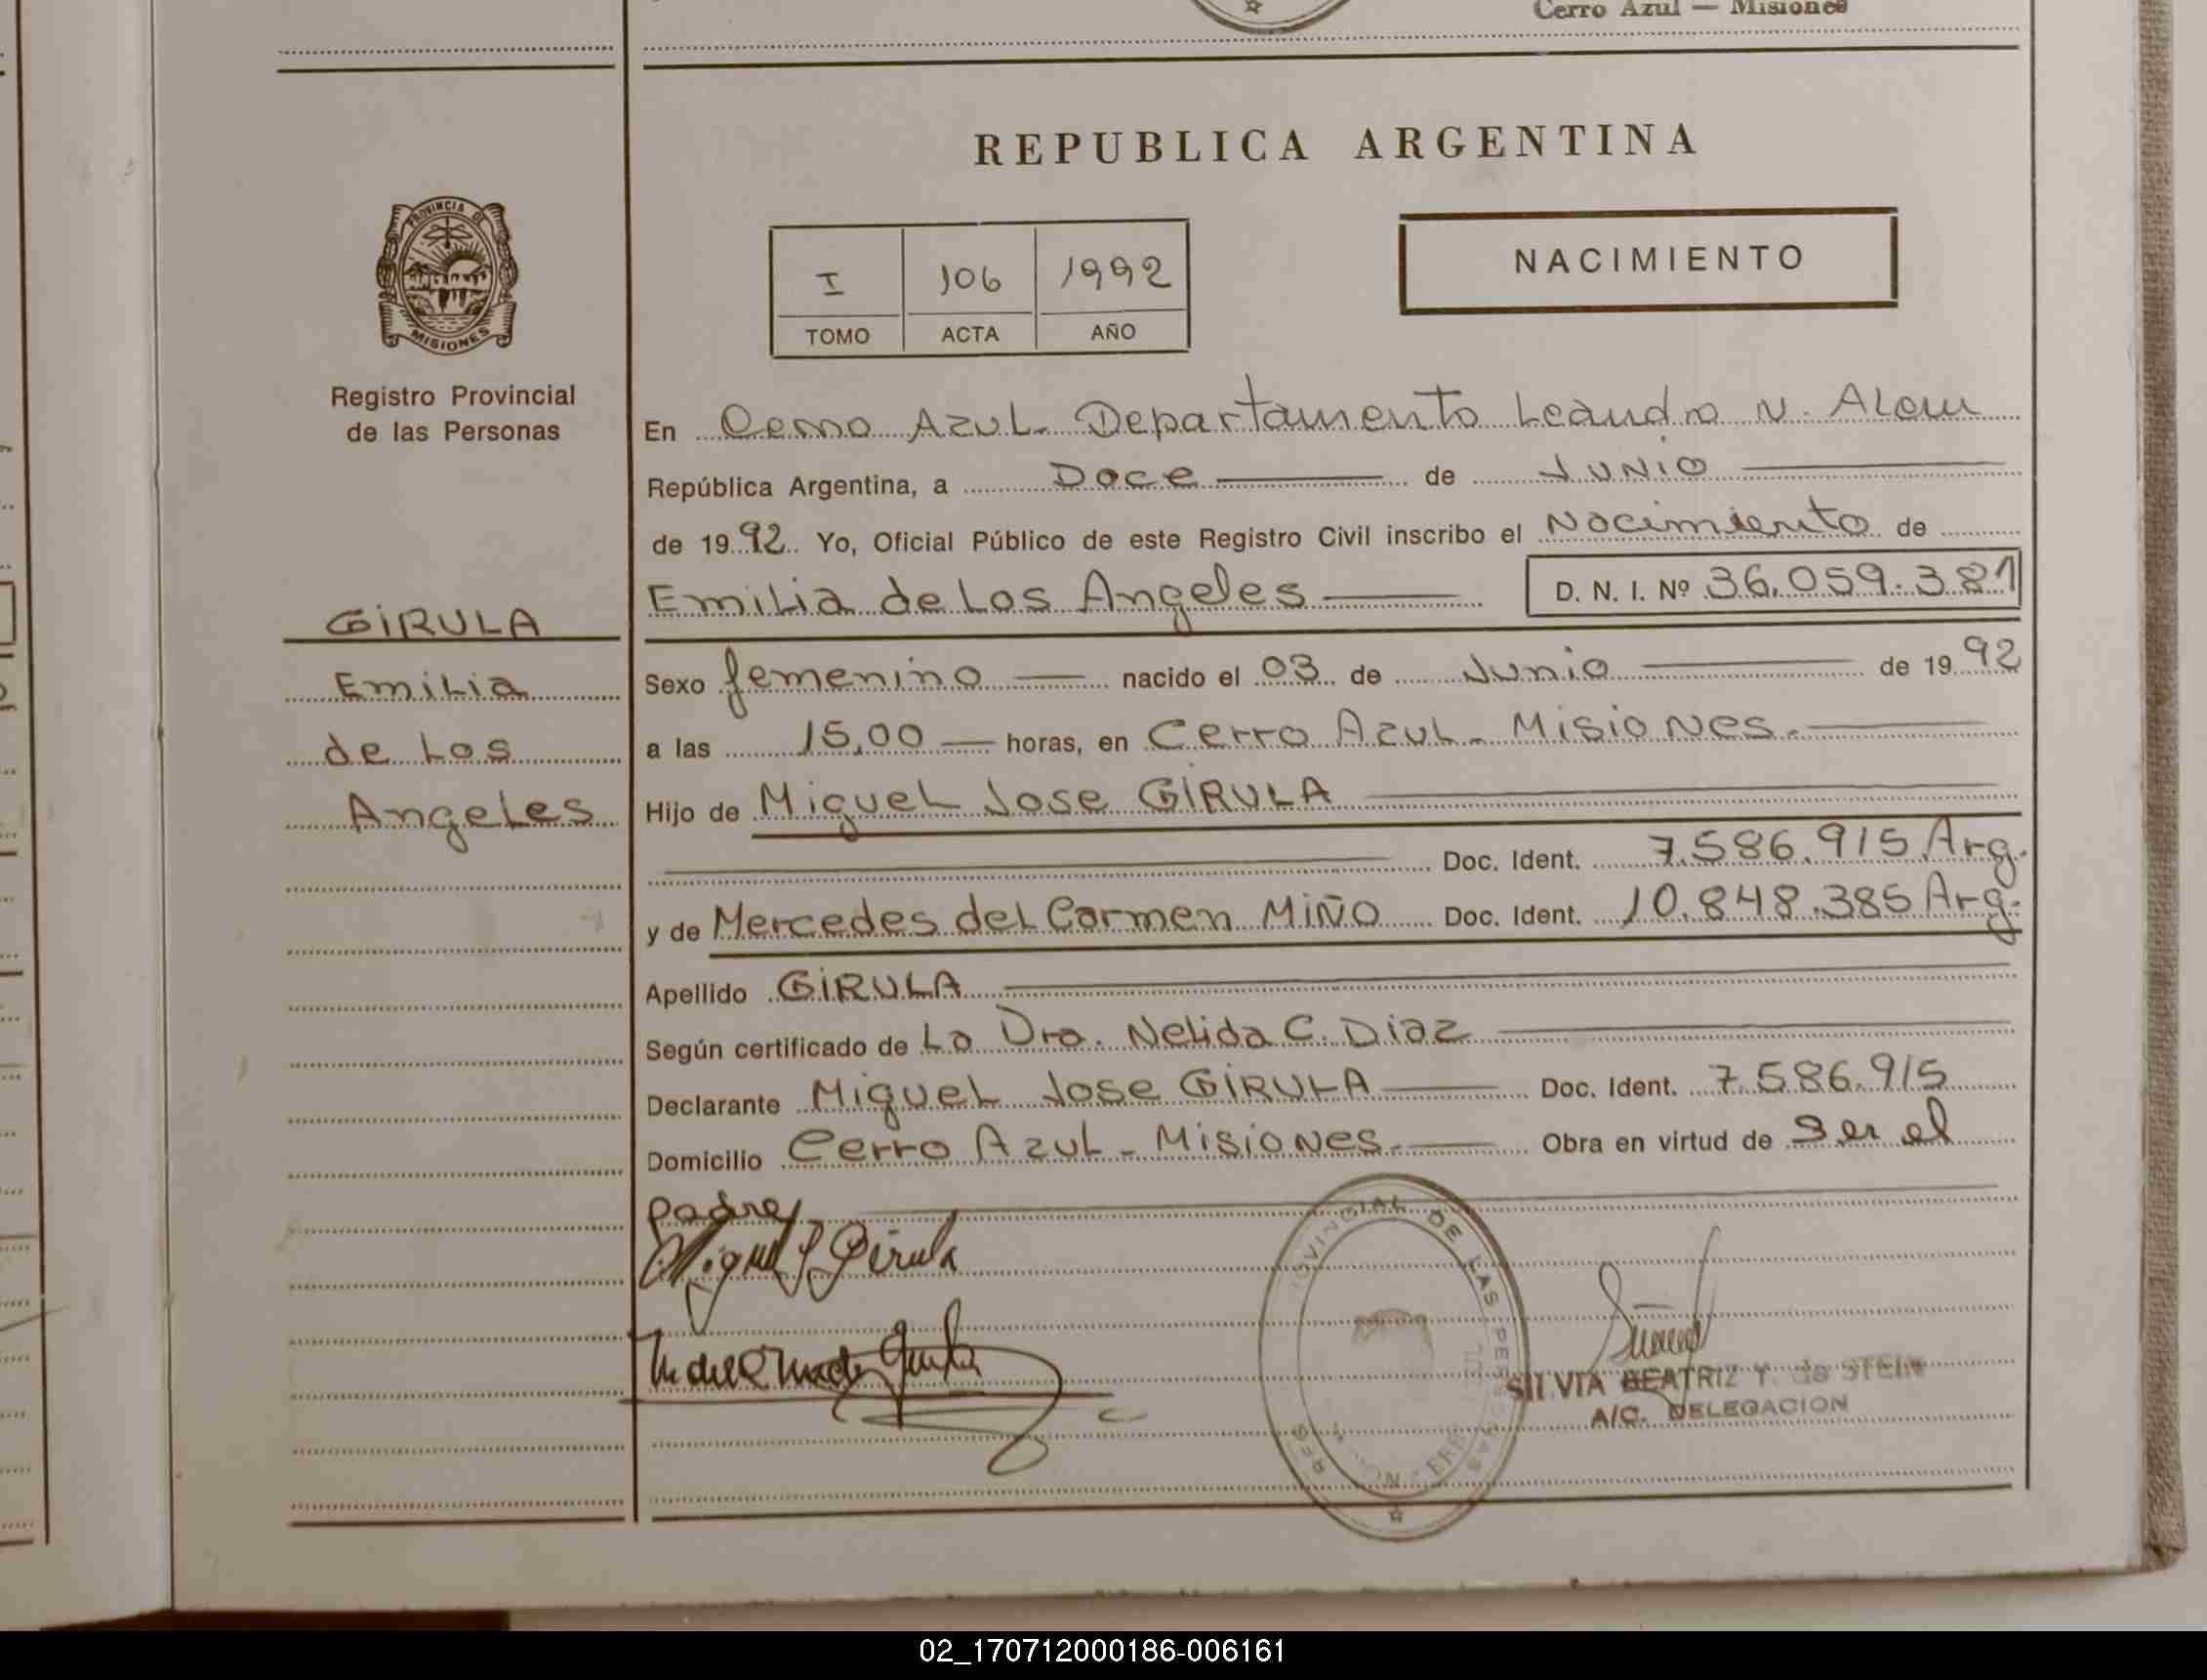 Cerro Azul — Misiones
REPUBLICA ARGENTINA
PROVINCIA DE
MISIONES
I 106 1992
TOMO ACTA AÑO
NACIMIENTO
Registro Provincial
de las Personas
En Cerro Azul. Departamento Leandro N. Alem
República Argentina, a Doce de Junio
de 1992. Yo, Oficial Público de este Registro Civil inscribo el Nacimiento de
Emilia de Los Angeles D. N. I. Nº 36.059.381
GIRULA
Emilia
de Los
Angeles
Sexo femenino nacido el 03 de Junio de 1992
a las 15,00 horas, en Cerro Azul - Misiones.
Hijo de Miguel Jose GIRULA
Doc. Ident. 7.586.915 Arg.
y de Mercedes del Carmen MIÑO Doc. Ident. 10.848.385 Arg.
Apellido GIRULA
Según certificado de La Dra. Nelida C. Diaz
Declarante Miguel Jose GIRULA Doc. Ident. 7.586.915
Domicilio Cerro Azul - Misiones. Obra en virtud de Ser el
padre
Miguel J Girula
DE LAS
SILVIA BEATRIZ Y. de STEIN
A/C. DELEGACION
02_170712000186-006161